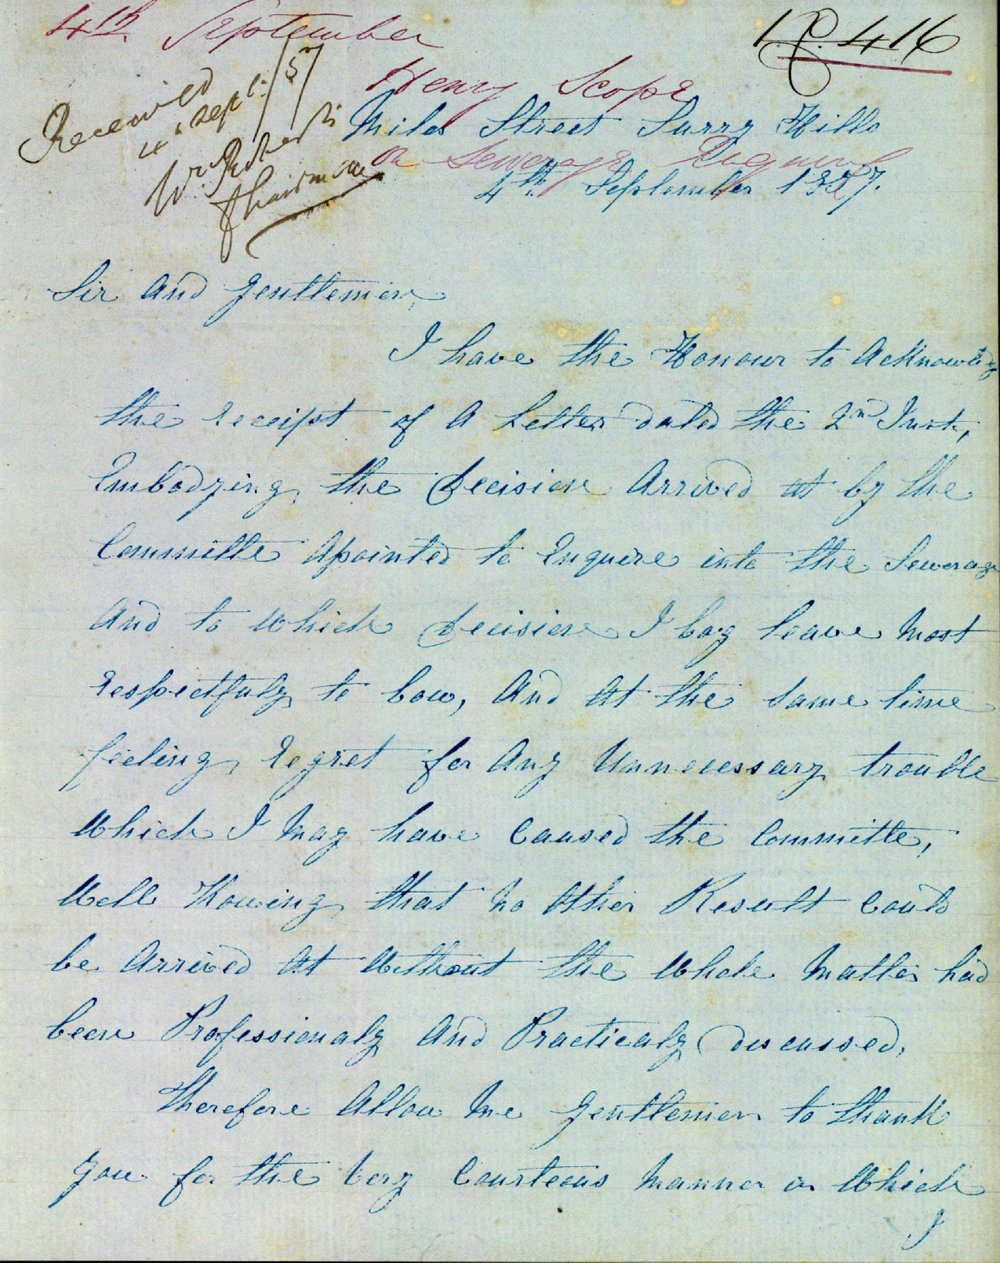 4th September
No. 416
Received
4th Sept: /57
Wm. Roberts
Chairman
Henry Scope
Miles Street Surry Hills
on Sewerage Enquiry
4th September 1857.
Sir And Gentlemen
I have the Honour to Acknowledge
the receipt of A Letter dated the 2nd Inst,
Embodying the Decision Arrived at by the
Committe Apointed to Enquire into the Sewerage
And to Which Decision I beg leave Most
respectfuly to bow, And At the same time
feeling regret for Any Unnecessary trouble
Which I May have Caused the Committe,
Well Knowing that No Other Result Could
be Arrived At Without the Whole Matter had
been Professionaly And Practicaly discussed,
Therefore Allow Me Gentlemen to thank
you for the Very Courteous Manner in Which